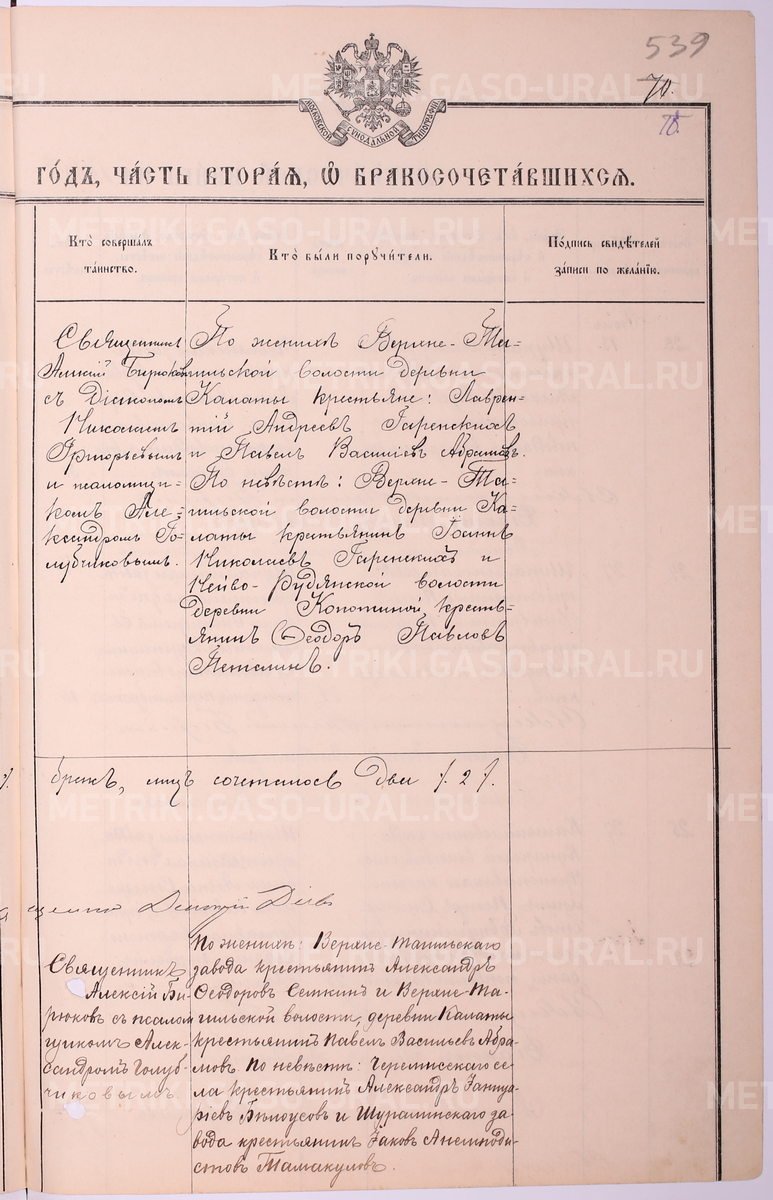 539
70.
70.
МОСКОВСКОЙ СѴНОДАЛЬНОЙ ТИПОГРАФІИ
ГО́ДЪ, ЧА́СТЬ ВТОРА́Я, Ѡ҆ БРАКОСОЧЕТА́ВШИХСЯ.
Кто̀ совершалъ
та́инство.
Кто̀ бы́ли порꙋчи́тели.
По́дпись свидѣ́телей
за́писи по жела́нїю.
Священникъ
Алексій Бирюковъ
съ Діакономъ
Николаемъ
Григорьевымъ
и псаломщи-
комъ Але-
ксандромъ Го-
лубчиковымъ.
По женихѣ Верхне-Та-
гильской волости деревни
Калаты крестьяне: Лаврен-
тій Андреевъ Гаренскихъ
и Павелъ Васильевъ Абрамовъ.
По невѣстѣ: Верхне-Та-
гильской волости деревни Ка-
латы крестьянинъ Іоаннъ
Николаевъ Гаренскихъ и
Нейво-Рудянской волости
деревни Копотиной кресть-
янинъ Ѳеодоръ Павловъ
Петелинъ.
бракъ, лицъ сочеталось два /. 2 /.
Дмитрій Діевъ
Священникъ
Алексій Би-
рюковъ съ псалом
щикомъ Алек-
сандромъ Голуб-
чиковымъ.
По женихѣ: Верхне-Тагильскаго
завода крестьянинъ Александръ
Ѳеодоровъ Семкинъ и Верхне-Та-
гильской волости, деревни Калаты
крестьянинъ Павелъ Васильевъ Абра-
мовъ. По невѣстѣ: Черемисскаго се-
ла крестьянинъ Александръ Іаннуа-
ріевъ Бѣлоусовъ и Шуралинскаго за
вода крестьянинъ Іаковъ Анемподи-
стовъ Тамакуловъ.
METRIKI.GASO-URAL.RU